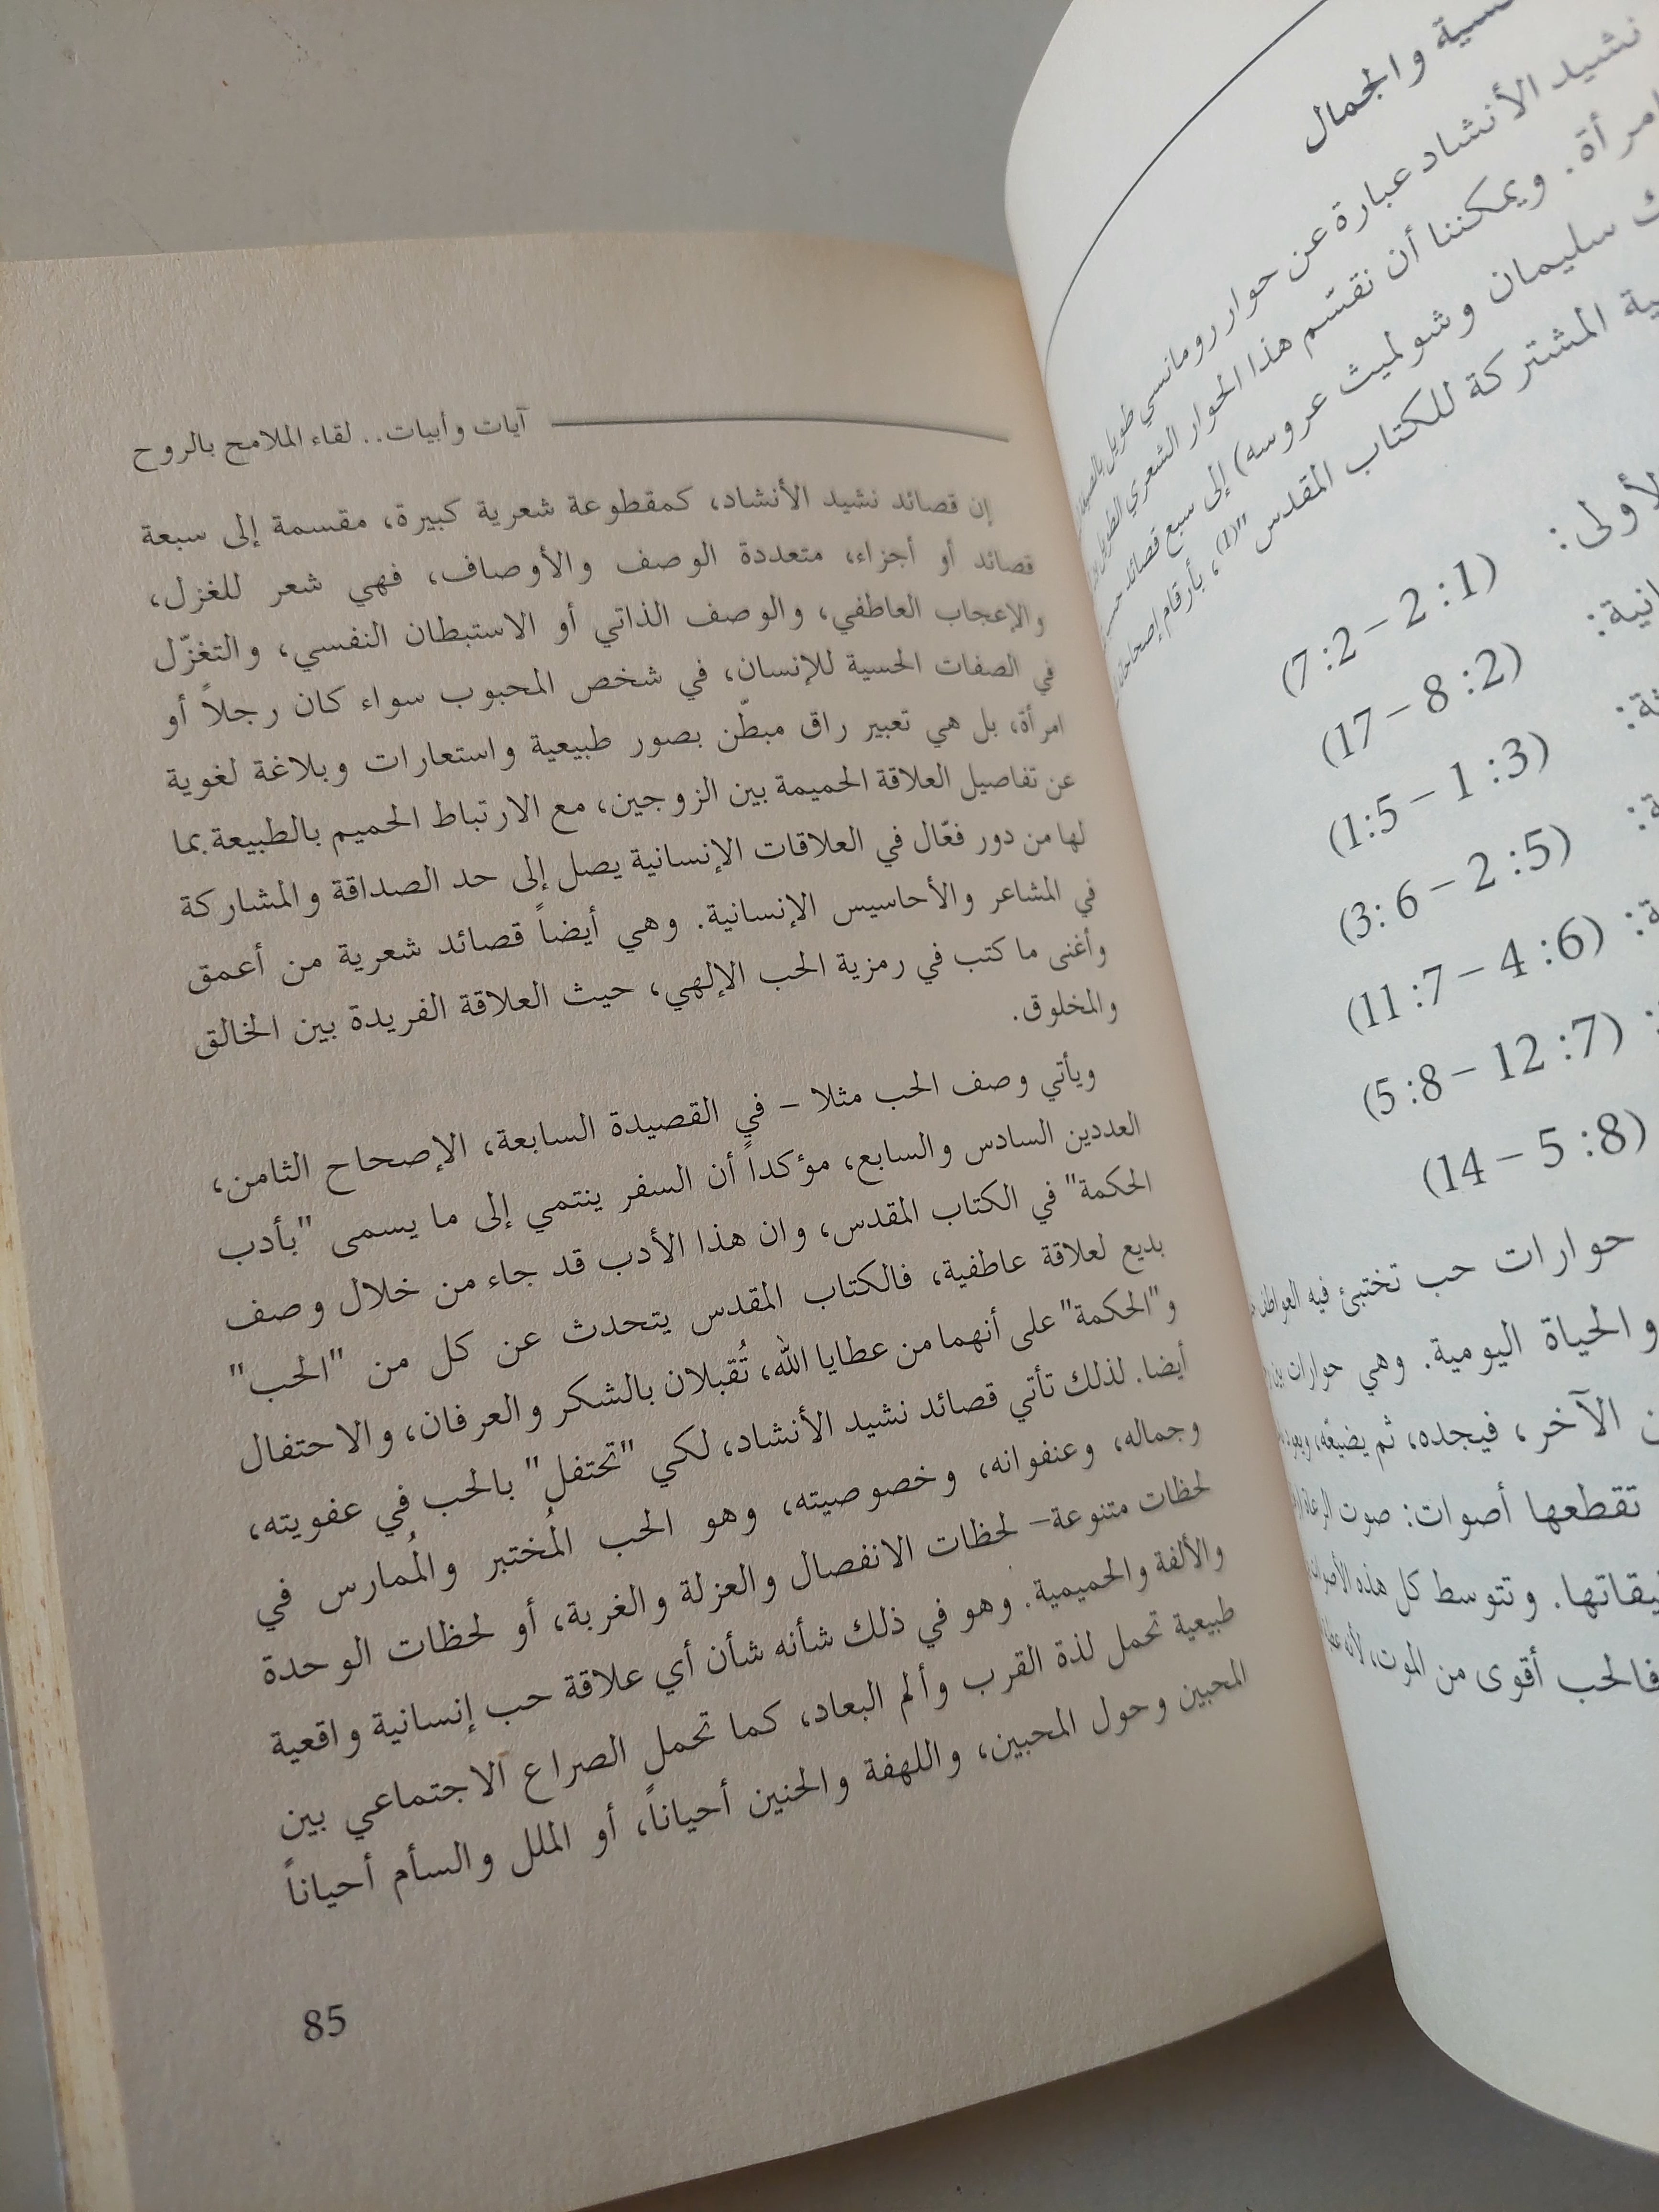 سية والجمال
نشيد الأنشاد عبارة عن حوار رومانسي طويل
امرأة. ويمكننا أن نقسّم هذا الحوار الشعري الطويل
سليمان وشولميث عروسه) إلى سبع قصائد
المشتركة للكتاب المقدس"(1)، بأرقام
الأولى: (1: 2 – 2: 7)
(2: 8 – 17)
(3: 1 – 5:1)
(5: 2 – 6 :3)
(6: 4 – 7: 11)
(7: 12 – 8: 5)
(8: 5 – 14)
حوارات حب تختبئ فيه
والحياة اليومية. وهي حوارات
الآخر، فيجده، ثم يضيعّه،
تقطعها أصوات: صوت
وتتوسط كل هذه
فالحب أقوى من الموت، لأنه
آيات وأبيات.. لقاء الملامح بالروح
إن قصائد نشيد الأنشاد، كمقطوعة شعرية كبيرة، مقسمة إلى سبعة
قصائد أو أجزاء، متعددة الوصف والأوصاف، فهي شعر للغزل،
والإعجاب العاطفي، والوصف الذاتي أو الاستبطان النفسي، والتغزّل
في الصفات الحسية للإنسان، في شخص المحبوب سواء كان رجلاً أو
امرأة، بل هي تعبير راق مبطّن بصور طبيعية واستعارات وبلاغة لغوية
عن تفاصيل العلاقة الحميمة بين الزوجين، مع الارتباط الحميم بالطبيعة بما
لها من دور فعّال في العلاقات الإنسانية يصل إلى حد الصداقة والمشاركة
في المشاعر والأحاسيس الإنسانية. وهي أيضاً قصائد شعرية من أعمق
وأغنى ما كتب في رمزية الحب الإلهي، حيث العلاقة الفريدة بين الخالق
والمخلوق.
ويأتي وصف الحب مثلا – في القصيدة السابعة، الإصحاح الثامن،
العددين السادس والسابع، مؤكداً أن السفر ينتمي إلى ما يسمى "بأدب
الحكمة" في الكتاب المقدس، وان هذا الأدب قد جاء من خلال وصف
بديع لعلاقة عاطفية، فالكتاب المقدس يتحدث عن كل من "الحب"
و"الحكمة" على أنهما من عطايا الله، تُقبلان بالشكر والعرفان، والاحتفال
أيضا. لذلك تأتي قصائد نشيد الأنشاد، لكي "تحتفل" بالحب في عفويته،
وجماله، وعنفوانه، وخصوصيته، وهو الحب المُختبر والمُمارس في
لحظات متنوعة– لحظات الانفصال والعزلة والغربة، أو لحظات الوحدة
والألفة والحميمية. وهو في ذلك شأنه شأن أي علاقة حب إنسانية واقعية
طبيعية تحمل لذة القرب وألم البعاد، كما تحمل الصراع الاجتماعي بين
المحبين وحول المحبين، واللهفة والحنين أحياناً، أو الملل والسأم أحياناً
85